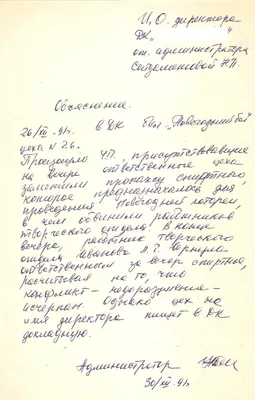 И.О. директора
ДК „ “
от администратора
Объяснение.
26/XII-91г. в ДК был „Новогодний бал“
цеха N 26.
Произошло ЧП, присутствовавшие
на вечере ответственные цеха
заметили пропажу спиртного,
которое предназначалось для
проведения Новогодней лотереи,
в чем обвинили работников
творческого отдела. В конце
вечера, работник творческого
отдела Иванова Я.? вернула
ответственным за вечер спиртное,
расчитывая на то, что
конфликт – недоразумение –
исчерпан. Однако цех на
имя директора пишет в ДК
докладную.
Администратор
30/XII-91